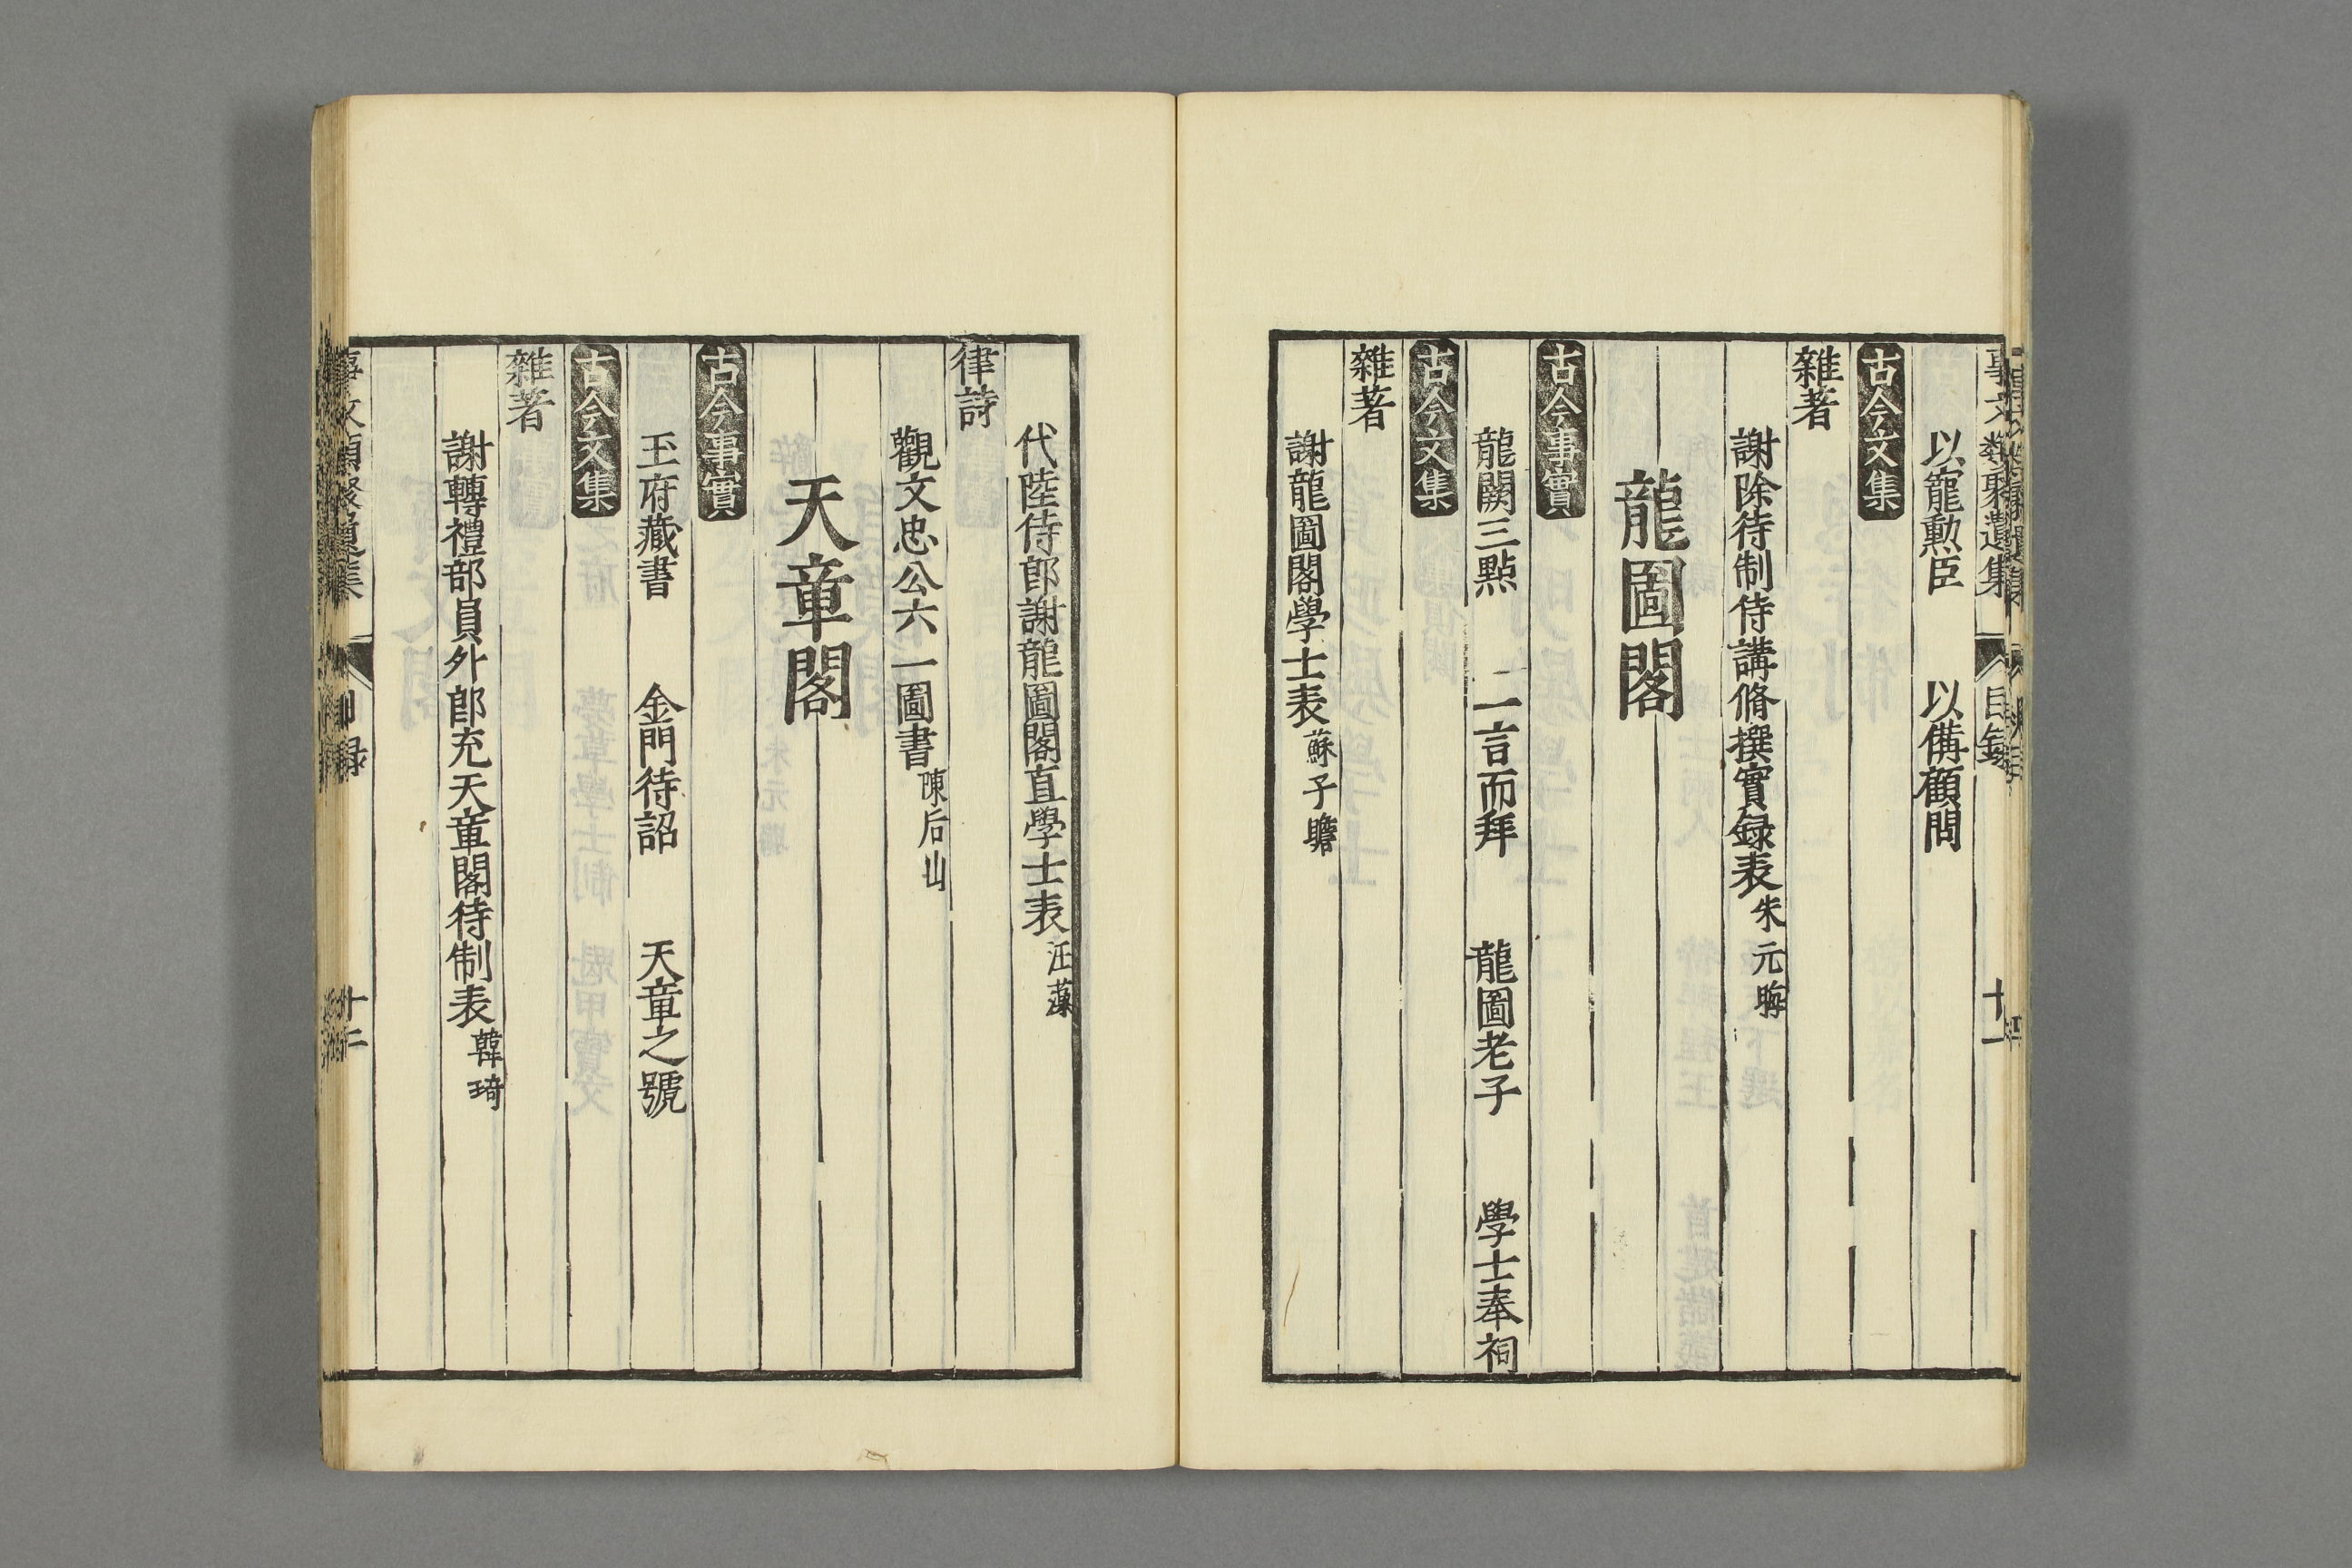 事文類聚遺集 目錄 十一
以寵勲臣 以備顧問
古今文集
雜著
謝除待制侍講脩撰實録表 朱元晦
龍圖閣
古今事實
龍闕三點 二言而拜 龍圖老子 學士奉祠
古今文集
雜著
謝龍圖閣學士表 蘇子瞻
代陸侍郎謝龍圖閣直學士表 汪藻
律詩
觀文忠公六一圖書 陳后山
天章閣
古今事實
玉府藏書 金門待詔 天章之號
古今文集
雜著
謝轉禮部員外郎充天章閣待制表 韓琦
事文類聚遺集 目録 十二